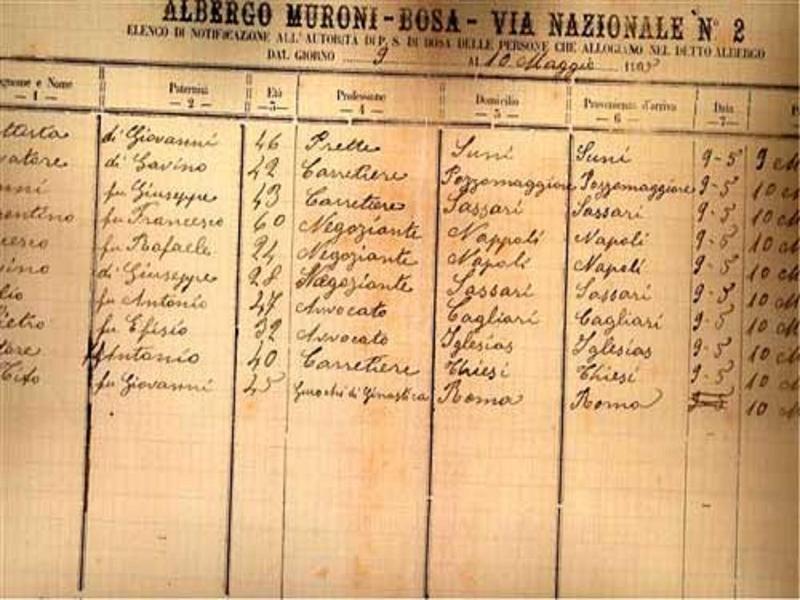 ALBERGO MURONI - BOSA - VIA NAZIONALE N° 2
ELENCO DI NOTIFICAZIONE ALL'AUTORITÀ DI P. S. DI BOSA DELLE PERSONE CHE ALLOGIANO NEL DETTO ALBERGO
DAL GIORNO 9 AL 10 Maggio
gnome e Nome Paternità Età Professione Domicilio Provenienza d'arriva Data
— 1 — — 2 — — 3 — — 4 — — 5 — — 6 — — 7 —
ttista di Giovanni 46 Prette Suni Suni 9-5 9 M
vatore di Gavino 42 Carretiere Pozzomaggiore Pozzomaggiore 9-5 10 M
nni fu Giuseppe 43 Carretiere Sassari Sassari 9-5 10 M
rentino fu Francesco 60 Negoziante Nappoli Napoli 9-5 10 M
cesco fu Rafaele 24 Negoziante Napoli Napoli 9-5 10 M
vino di Giuseppe 28 Negoziante Sassari Sassari 9-5 10 M
lio fu Antonio 47 Avvocato Cagliari Cagliari 9-5 10 M
Pietro fu Efisio 32 Avvocato Iglesias Iglesias 9-5 10 M
tore Antonio 40 Carretiere Thiesi Thiesi 9-5 10 M
Tito fu Giovanni 45 di Ginastica Roma Roma 10 M